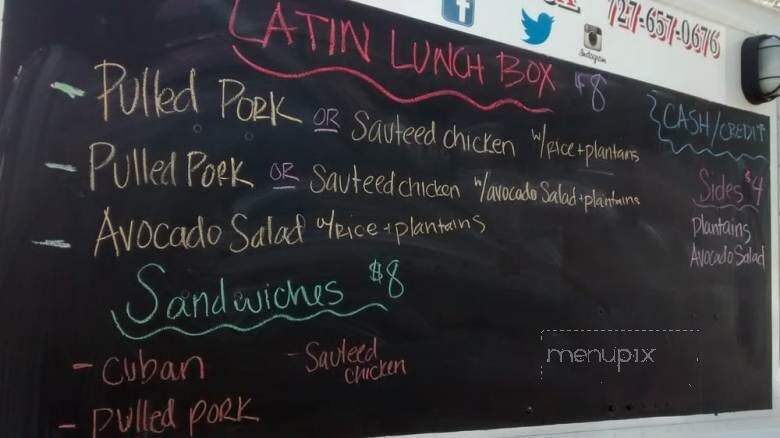 727-657-0676
Instagram
LATIN LUNCH BOX $8
CASH/CREDIT
- Pulled Pork OR Sauteed chicken w/rice + plantains
- Pulled Pork OR Sauteed chicken w/avocado Salad + plantains
- Avocado Salad w/Rice + plantains
Sides $4
Plantains
Avocado Salad
Sandwiches $8
- Cuban
- Sauteed
chicken
- Pulled Pork
menupix